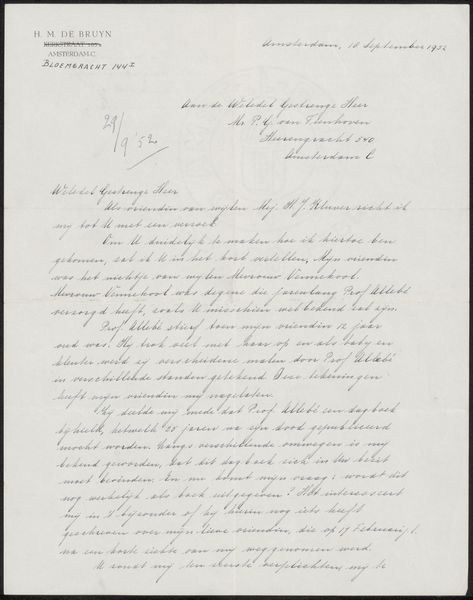 H. M. DE BRUYN
KERKSTRAAT 105a
AMSTERDAM-C.
BLOEMGRACHT 144 I
Amsterdam, 10 September 1952
29/9 '52
Aan de Weledel Gestrenge Heer
Mr. P. G. van Tienhoven
Heerengracht 540
Amsterdam C
Weledel Gestrenge Heer
Als vriendin van wijlen Mej. H. J. Kluver richt ik
my tot U met een verzoek.
Om U duidelijk te maken hoe ik hiertoe ben
gekomen, zal ik U in het kort vertellen, Mijn vriendin
was het nichtje van wijlen Mevrouw Vennekool.
Mevrouw Vennekool was degene die jarenlang Prof. Allebé
verzorgd heeft, zoals U misschien wel bekend zal zijn.
Prof. Allebé stierf toen mijn vriendin 12 jaar
oud was. Hij trok veel met haar op en als baby en
kleuter werd zij verscheidene malen door Prof. Allebé
in verschillende standen getekend. Deze tekeningen
heeft mijn vriendin my nagelaten.
Zij deelde my mede dat Prof. Allebé een dagboek
bijhield, hetwelk 25 jaren na zijn dood gepubliceerd
mocht worden. Langs verschillende omwegen is my
bekend geworden, dat dit dagboek zich in Uw bezit
moet bevinden. En nu komt mijn vraag: wordt dit
nog werkelijk als boek uitgegeven? Het interesseert
my in 't bijzonder of hij hierin nog iets heeft
geschreven over mijn lieve vriendin, die op 17 Februari j.l.
na een korte ziekte van my weggenomen werd.
U zoudt my ten zeerste verplichten, my te